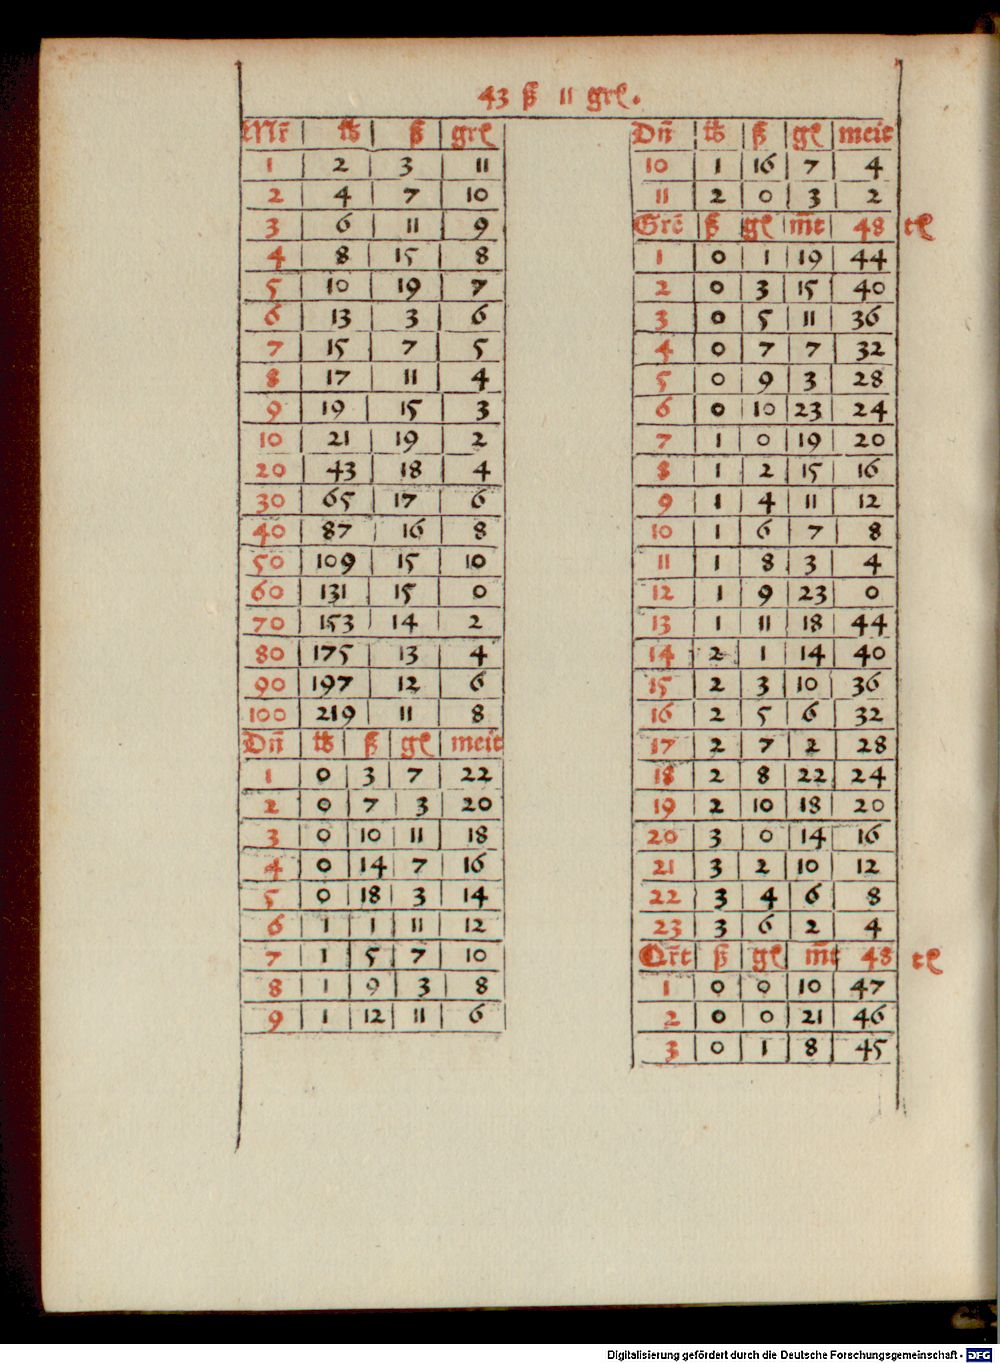 43 ß 11 grl.
Mr̃ | lb | ß | grl
1 | 2 | 3 | 11
2 | 4 | 7 | 10
3 | 6 | 11 | 9
4 | 8 | 15 | 8
5 | 10 | 19 | 7
6 | 13 | 3 | 6
7 | 15 | 7 | 5
8 | 17 | 11 | 4
9 | 19 | 15 | 3
10 | 21 | 19 | 2
20 | 43 | 18 | 4
30 | 65 | 17 | 6
40 | 87 | 16 | 8
50 | 109 | 15 | 10
60 | 131 | 15 | 0
70 | 153 | 14 | 2
80 | 175 | 13 | 4
90 | 197 | 12 | 6
100 | 219 | 11 | 8
Dn̄ | lb | ß | gl | meit
1 | 0 | 3 | 7 | 22
2 | 0 | 7 | 3 | 20
3 | 0 | 10 | 11 | 18
4 | 0 | 14 | 7 | 16
5 | 0 | 18 | 3 | 14
6 | 1 | 1 | 11 | 12
7 | 1 | 5 | 7 | 10
8 | 1 | 9 | 3 | 8
9 | 1 | 12 | 11 | 6
Dn̄ | lb | ß | gl | meit
10 | 1 | 16 | 7 | 4
11 | 2 | 0 | 3 | 2
Grē | ß | gl | m̄t | 48 tl
1 | 0 | 1 | 19 | 44
2 | 0 | 3 | 15 | 40
3 | 0 | 5 | 11 | 36
4 | 0 | 7 | 7 | 32
5 | 0 | 9 | 3 | 28
6 | 0 | 10 | 23 | 24
7 | 1 | 0 | 19 | 20
8 | 1 | 2 | 15 | 16
9 | 1 | 4 | 11 | 12
10 | 1 | 6 | 7 | 8
11 | 1 | 8 | 3 | 4
12 | 1 | 9 | 23 | 0
13 | 1 | 11 | 18 | 44
14 | 2 | 1 | 14 | 40
15 | 2 | 3 | 10 | 36
16 | 2 | 5 | 6 | 32
17 | 2 | 7 | 2 | 28
18 | 2 | 8 | 22 | 24
19 | 2 | 10 | 18 | 20
20 | 3 | 0 | 14 | 16
21 | 3 | 2 | 10 | 12
22 | 3 | 4 | 6 | 8
23 | 3 | 6 | 2 | 4
Qr̃t | ß | gl | m̄t | 48 tl
1 | 0 | 0 | 10 | 47
2 | 0 | 0 | 21 | 46
3 | 0 | 1 | 8 | 45
Digitalisierung gefördert durch die Deutsche Forschungsgemeinschaft - DFG